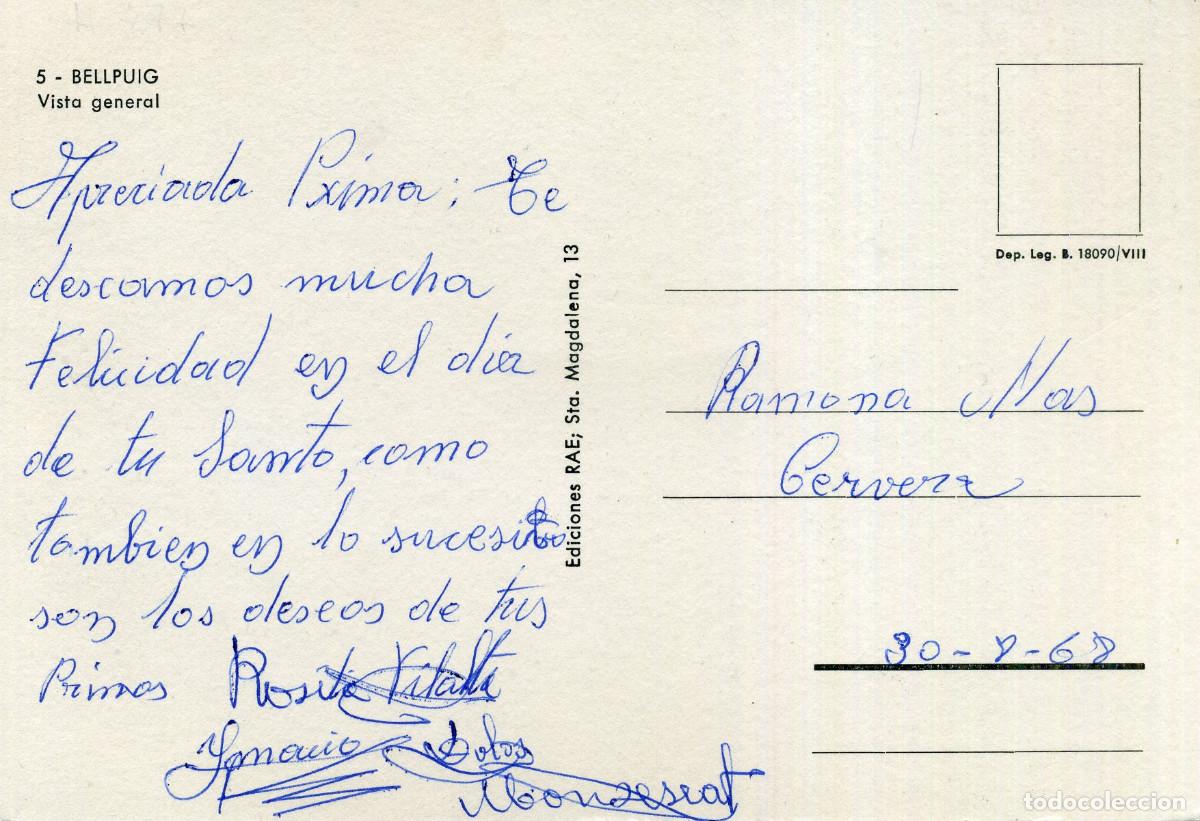 5 - BELLPUIG
Vista general
Apreciada Prima: Te
descamos mucha
Felicidad en el día
de tu Santo, como
tambien en lo sucesivo
son los deseos de tus
Primos Rosita
Ignacio Dolos
Monserrat
Ediciones RAE; Sta. Magdalena, 13
Dep. Leg. B. 18090/VIII
Ramona Mas
Cervera
30-8-68
todocoleccion